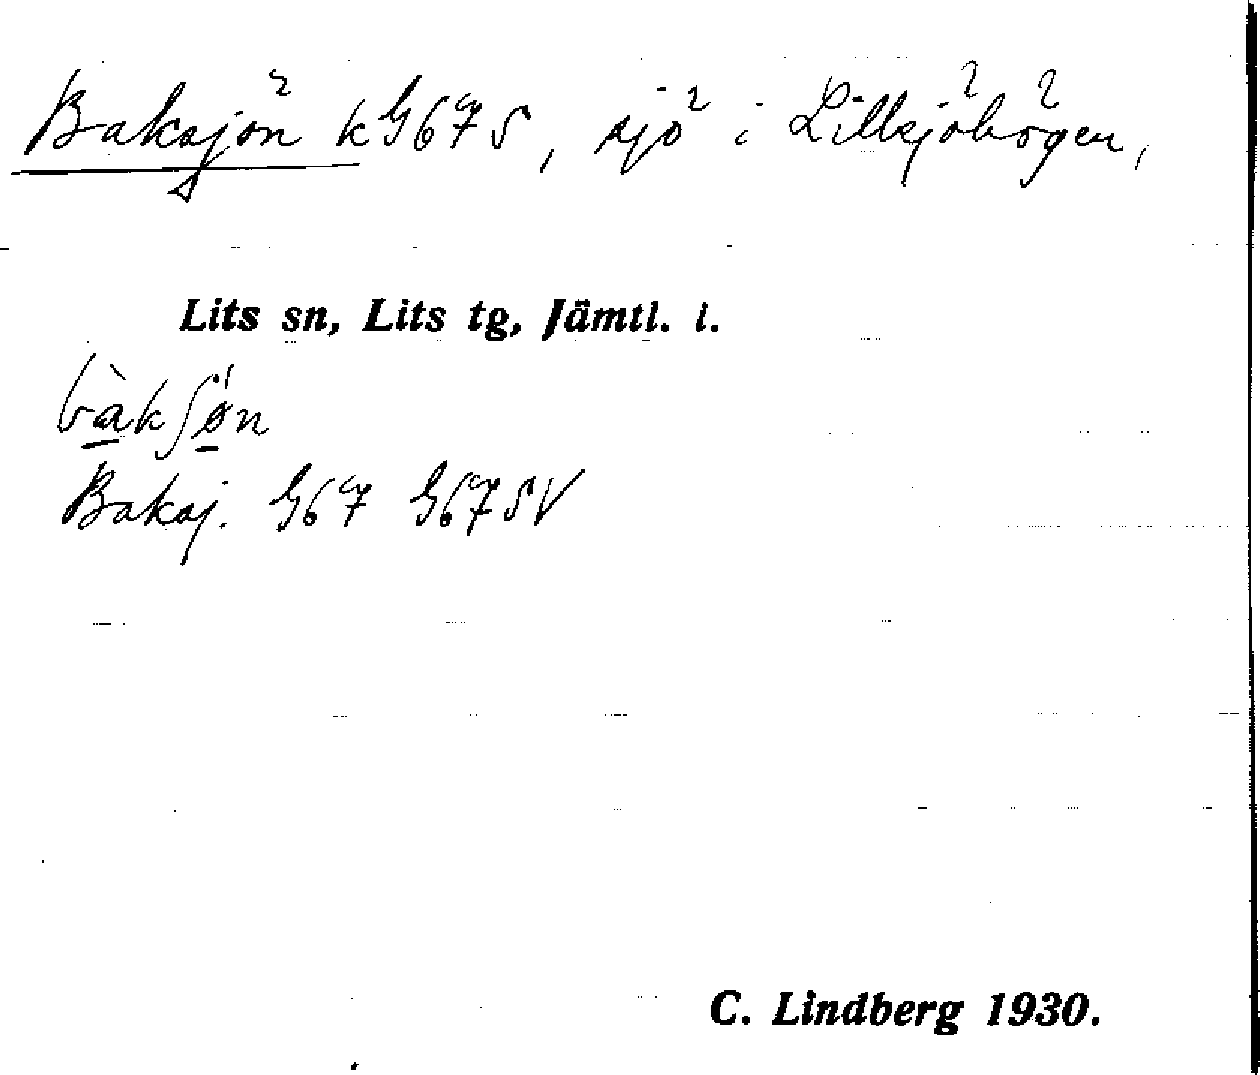 Baksjön k G67S, sjö i Lillsjöhögen,
Lits sn, Lits tg, Jämtl. l.
bàkʃǿn
Baksj. G67 G67SV
C. Lindberg 1930.